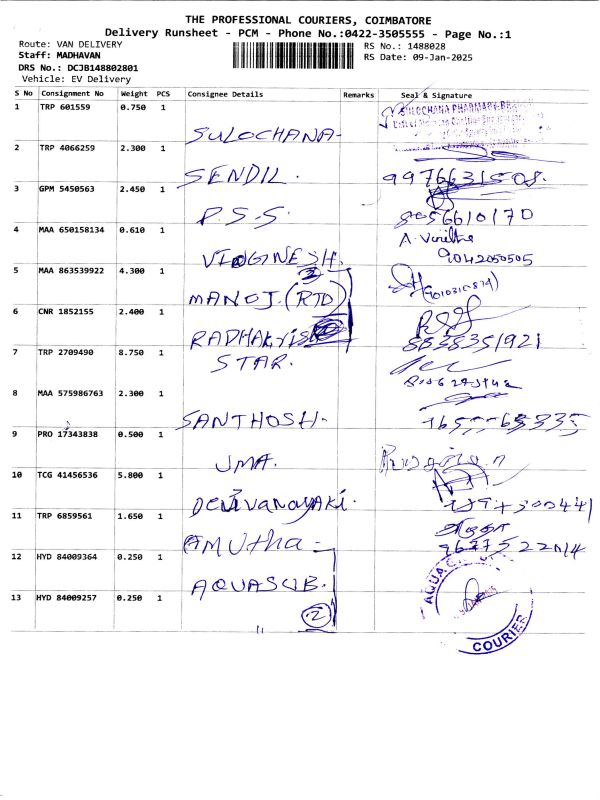 THE PROFESSIONAL COURIERS, COIMBATORE
Delivery Runsheet - PCM - Phone No.:0422-3505555 - Page No.:1
Route: VAN DELIVERY RS No.: 1488028
Staff: MADHAVAN RS Date: 09-Jan-2025
DRS No.: DCJB148802801
Vehicle: EV Delivery
S No Consignment No Weight PCS Consignee Details Remarks Seal & Signature
1 TRP 601559 0.750 1
SULOCHANA- SULOCHANA PHARMACY
2 TRP 4066259 2.300 1
SENDIL. 9976631508.
3 GPM 5450563 2.450 1
P.S.S. 8056610170
4 MAA 650158134 0.610 1
VIGINESH. 9042050505
5 MAA 863539922 4.300 1
2
MANOJ.(RTD)
6 CNR 1852155 2.400 1
8838351921
7 TRP 2709490 8.750 1
STAR.
8 MAA 575986763 2.300 1
SANTHOSH-
9 PRO 17343838 0.500 1
UMA.
10 TCG 41456536 5.800 1
DEIVANAYAKI.
11 TRP 6859561 1.650 1
AMUtha- அமுதா
9677522014
12 HYD 84009364 0.250 1
AQUASUB. AQUA
13 HYD 84009257 0.250 1
2
COURIER